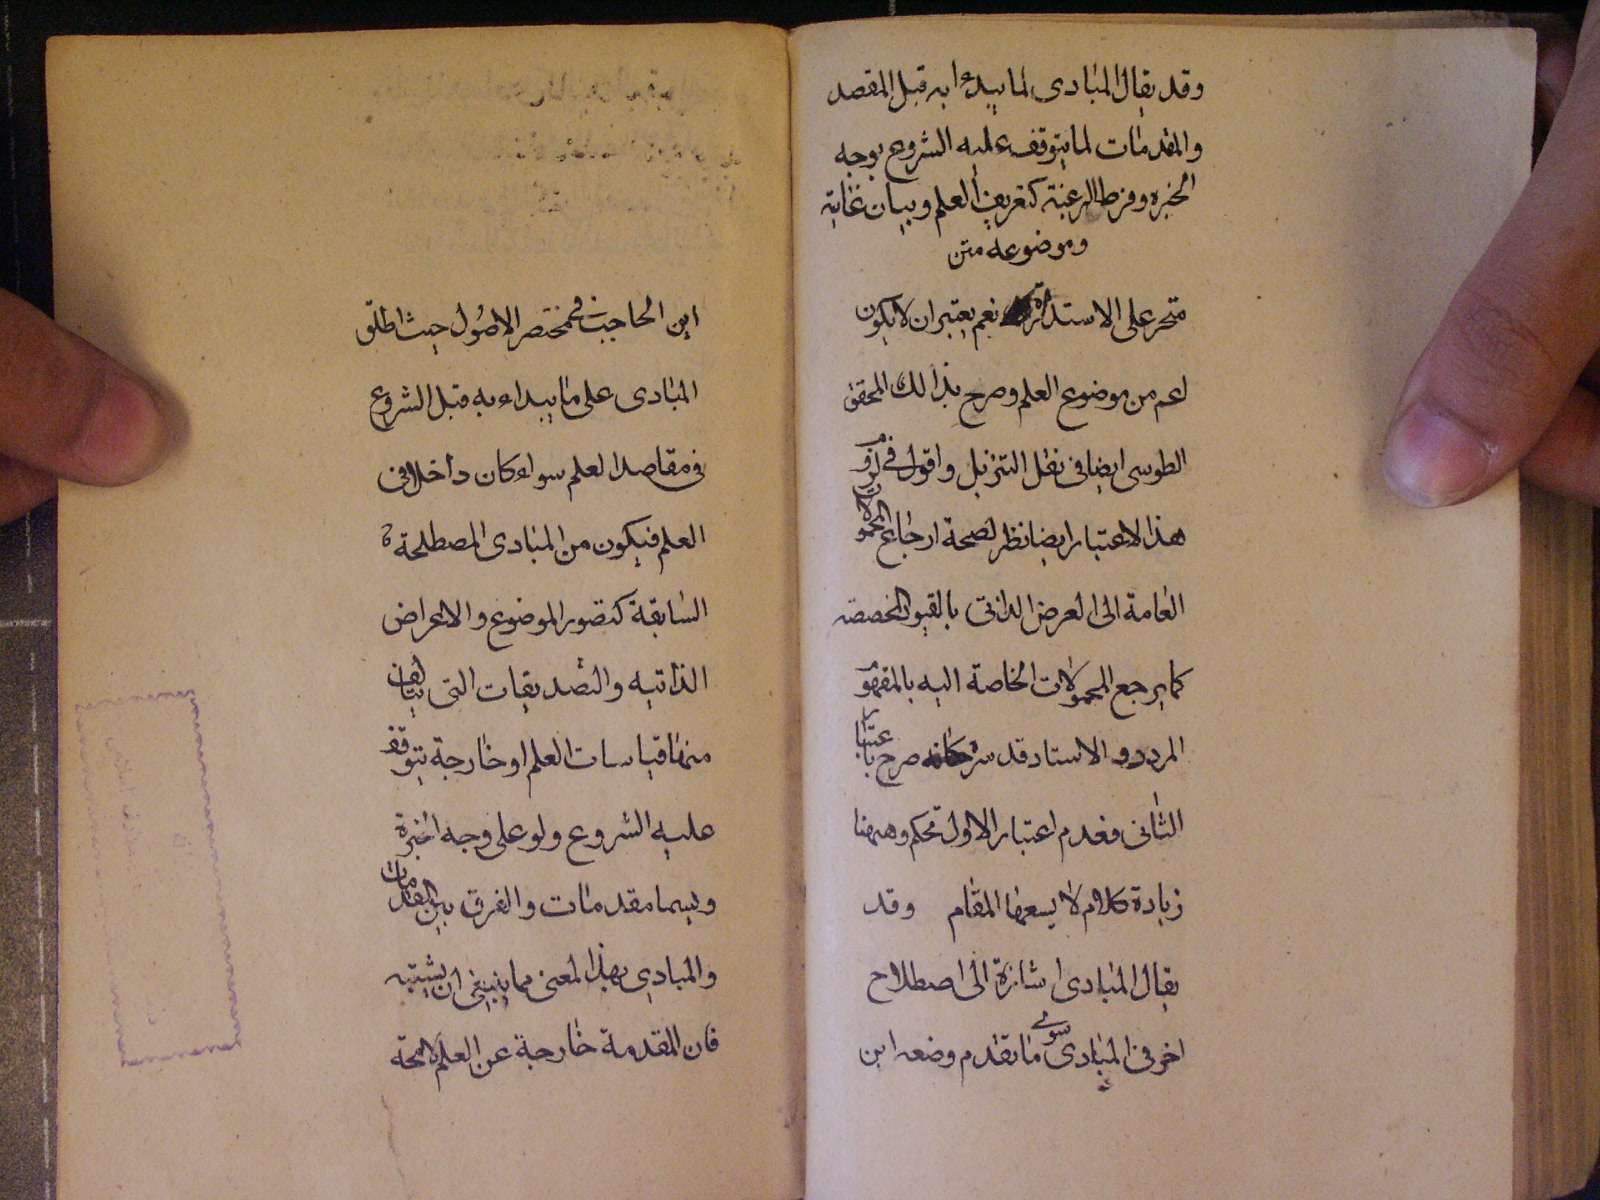 وقد يقال المبادى لما يبدء به قبل المقصد
والمقدمات لما يتوقف عليه الشروع بوجه
الخبره وفرط الرغبة كتعريف العلم وبيان غايته
وموضوعه متن
على نعم يعتبر ان لا يكون
اعم من موضوع العلم وصرح بذالك المحقق
الطوسى ايضا فى نقل التنزيل واقول فى لزوم
هذا الاعتبار ايضا نظر لصحة ارجاع المحمولات
العامة الى العرض الذاتى بالقيود المخصصه
كما يرجع المحمولات الخاصة اليه بالمفهوم
المردد والاستاد قد صرح باعتبار
الثانى فعدم اعتبار الاول تحكم وههنا
زيادة كلام لا يسعها المقام وقد
يقال المبادى اشارة الى اصطلاح
اخر فى المبادى سوى ما تقدم وضعه ابن
ابن الحاجب فى مختصر الاصول حيث اطلق
المبادى على ما يبداء به قبل الشروع
فى مقاصد العلم سواء كان داخلا فى
العلم فيكون من المبادى المصطلحة
السابقة كتصور الموضوع والاعراض
الذاتيه والتصديقات التى يتألف
منها قياسات العلم او خارجة يتوقف
عليه الشروع ولو على وجه الخبرة
ويسما مقدمات والفرق بين المقدمات
والمبادى بهذا لمعنى مما ينبغى ان يشتبه
فان المقدمة خارجة عن العلم لامحة